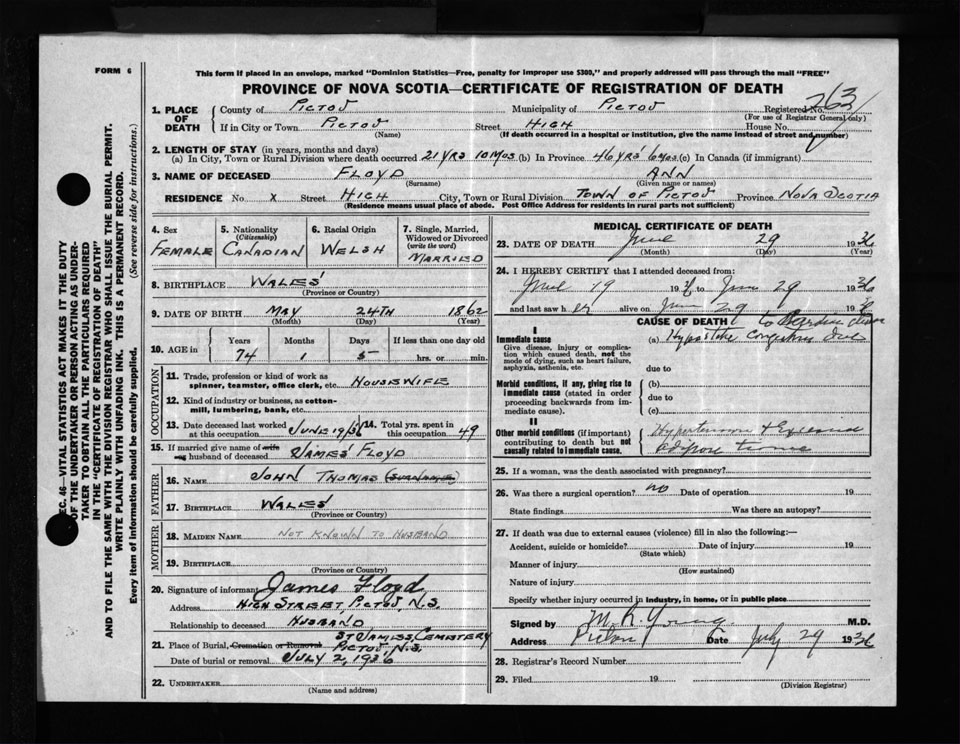 FORM 6
This form if placed in an envelope, marked "Dominion Statistics—Free, penalty for improper use $300," and properly addressed will pass through the mail "FREE"
PROVINCE OF NOVA SCOTIA—CERTIFICATE OF REGISTRATION OF DEATH
SEC. 46—VITAL STATISTICS ACT MAKES IT THE DUTY
OF THE UNDERTAKER OR PERSON ACTING AS UNDER-
TAKER TO OBTAIN ALL THE PARTICULARS REQUIRED
IN THE "CERTIFICATE OF REGISTRATION OF DEATH"
AND TO FILE THE SAME WITH THE DIVISION REGISTRAR WHO SHALL ISSUE THE BURIAL PERMIT.
WRITE PLAINLY WITH UNFADING INK. THIS IS A PERMANENT RECORD.
Every item of information should be carefully supplied. (See reverse side for instructions.)
1. PLACE OF DEATH County of PICTOU Municipality of PICTOU Registered No. 263
(For use of Registrar General only)
If in City or Town PICTOU Street HIGH House No.
(Name) (If death occurred in a hospital or institution, give the name instead of street and number)
2. LENGTH OF STAY (in years, months and days)
(a) In City, Town or Rural Division where death occurred 21 YRS 10 MOS (b) In Province 46 YRS 6 MOS (c) In Canada (if immigrant)
3. NAME OF DECEASED FLOYD ANN
(Surname) (Given name or names)
RESIDENCE No. X Street HIGH City, Town or Rural Division TOWN OF PICTOU Province NOVA SCOTIA
(Residence means usual place of abode. Post Office Address for residents in rural parts not sufficient)
4. Sex FEMALE
5. Nationality (Citizenship) CANADIAN
6. Racial Origin WELSH
7. Single, Married, Widowed or Divorced (write the word) MARRIED
8. BIRTHPLACE WALES
(Province or Country)
9. DATE OF BIRTH MAY 24TH 1862
(Month) (Day) (Year)
10. AGE in Years 74 Months 1 Days 5 If less than one day old hrs. or min.
OCCUPATION
11. Trade, profession or kind of work as spinner, teamster, office clerk, etc. HOUSEWIFE
12. Kind of industry or business, as cotton-mill, lumbering, bank, etc.
13. Date deceased last worked at this occupation JUNE 19/36 14. Total yrs. spent in this occupation 49
15. If married give name of wife or husband of deceased JAMES FLOYD
FATHER
16. NAME JOHN THOMAS (SURNAME)
17. BIRTHPLACE WALES
(Province or Country)
MOTHER
18. MAIDEN NAME NOT KNOWN TO HUSBAND
19. BIRTHPLACE
(Province or Country)
20. Signature of informant James Floyd
Address HIGH STREET, PICTOU, N.S.
Relationship to deceased HUSBAND
21. Place of Burial, Cremation or Removal ST JAMES, CEMETERY PICTOU N.S.
Date of burial or removal JULY 2, 1936
22. UNDERTAKER
(Name and address)
MEDICAL CERTIFICATE OF DEATH
23. DATE OF DEATH June 29 1936
(Month) (Day) (Year)
24. I HEREBY CERTIFY that I attended deceased from:
June 19 1936 to June 29 1936
and last saw her alive on June 29 1936
CAUSE OF DEATH
I
Immediate cause
Give disease, injury or complication which caused death, not the mode of dying, such as heart failure, asphyxia, asthenia, etc.
(a) Hypostatic congestion due to
due to
Morbid conditions, if any, giving rise to immediate cause (stated in order proceeding backwards from immediate cause).
(b)
due to
(c)
II
Other morbid conditions (if important) contributing to death but not causally related to immediate cause.
Hypertension + Excessive
adipose tissue
25. If a woman, was the death associated with pregnancy?
26. Was there a surgical operation? no Date of operation 19
State findings Was there an autopsy?
27. If death was due to external causes (violence) fill in also the following:—
Accident, suicide or homicide? Date of injury 19
(State which)
Manner of injury
(How sustained)
Nature of injury
Specify whether injury occurred in industry, in home, or in public place
Signed by M. R. Young M.D.
Address Pictou Date July 29 1936
28. Registrar's Record Number
29. Filed 19
(Division Registrar)